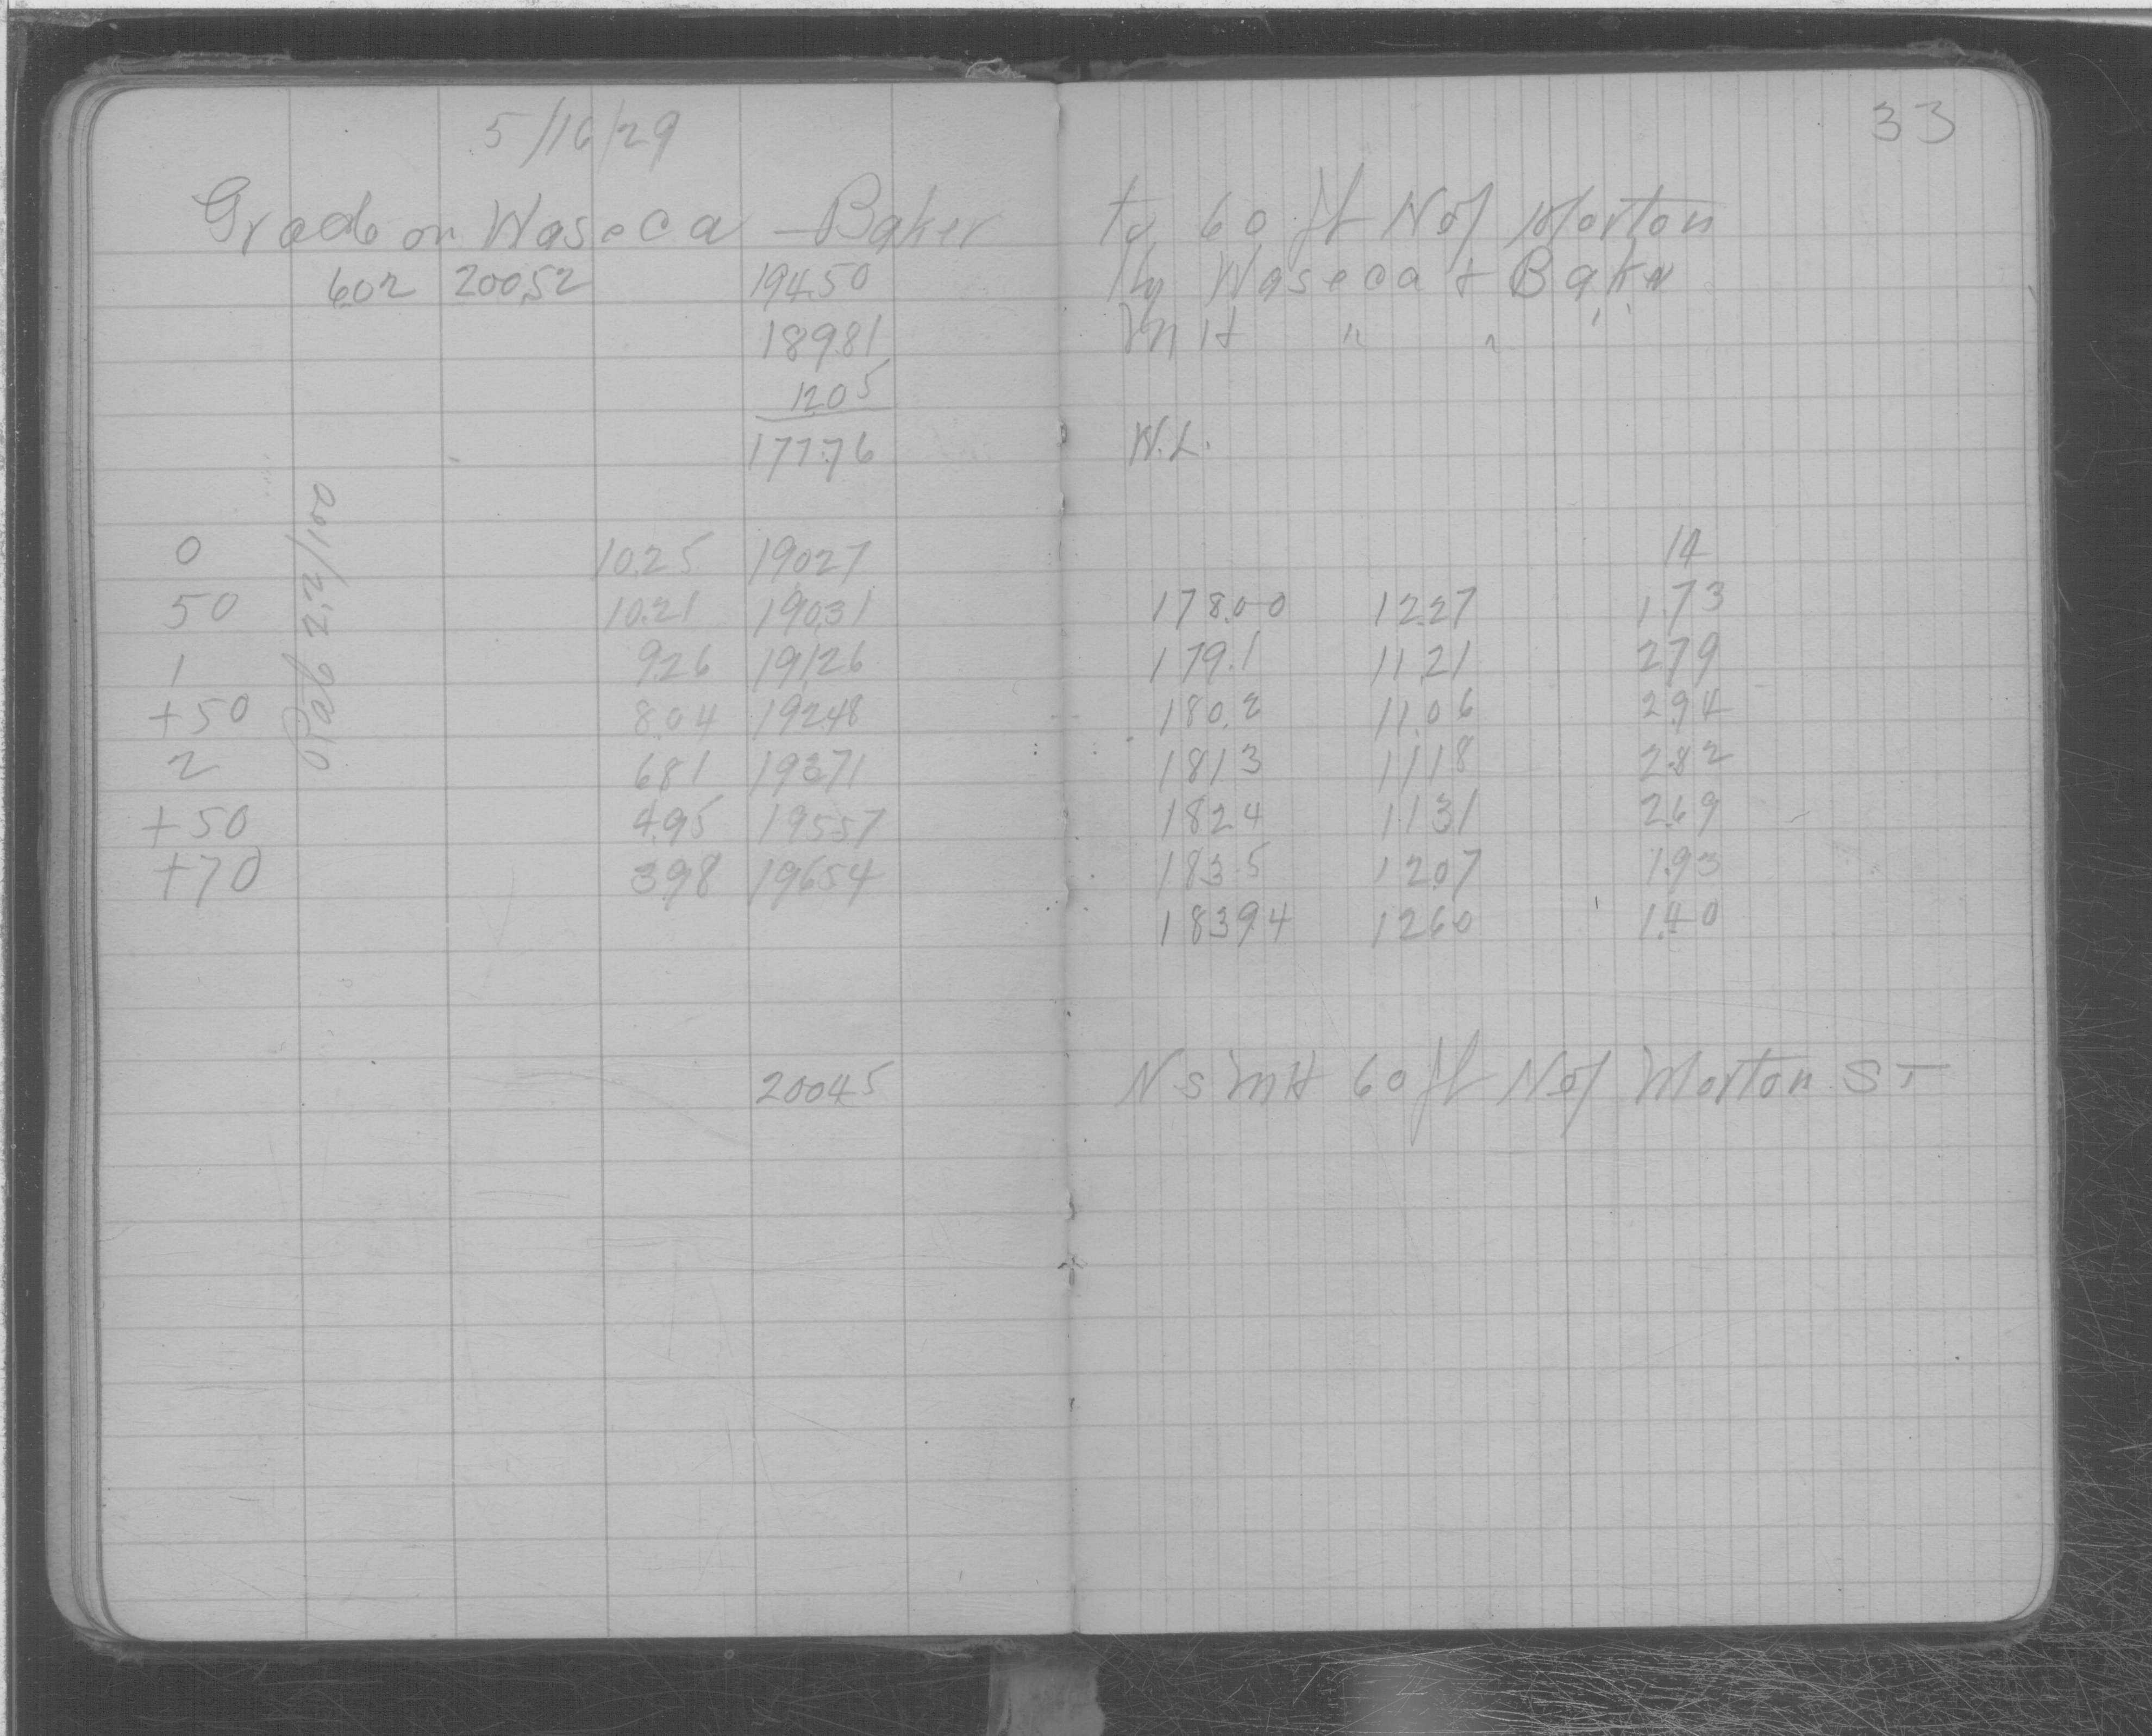 5/16/29
33
Grade on Waseca - Baker to 60 ft N of Morton
602 20052 19450 Hy Waseca + Baker
18981 M H " " "
1205
17776 W.L.
Rate 2.2/100
0 10.25 19027 14
50 10.21 19031 178.00 1227 1.73
1 926 19126 179.1 1121 279
+50 8.04 19248 180.2 11.06 294
2 681 19371 1813 1118 282
+50 4.95 19557 1824 1131 269
+70 398 19654 183.5 1207 1.93
18394 1260 1.40
20045 N S MH 60 ft N of Morton ST